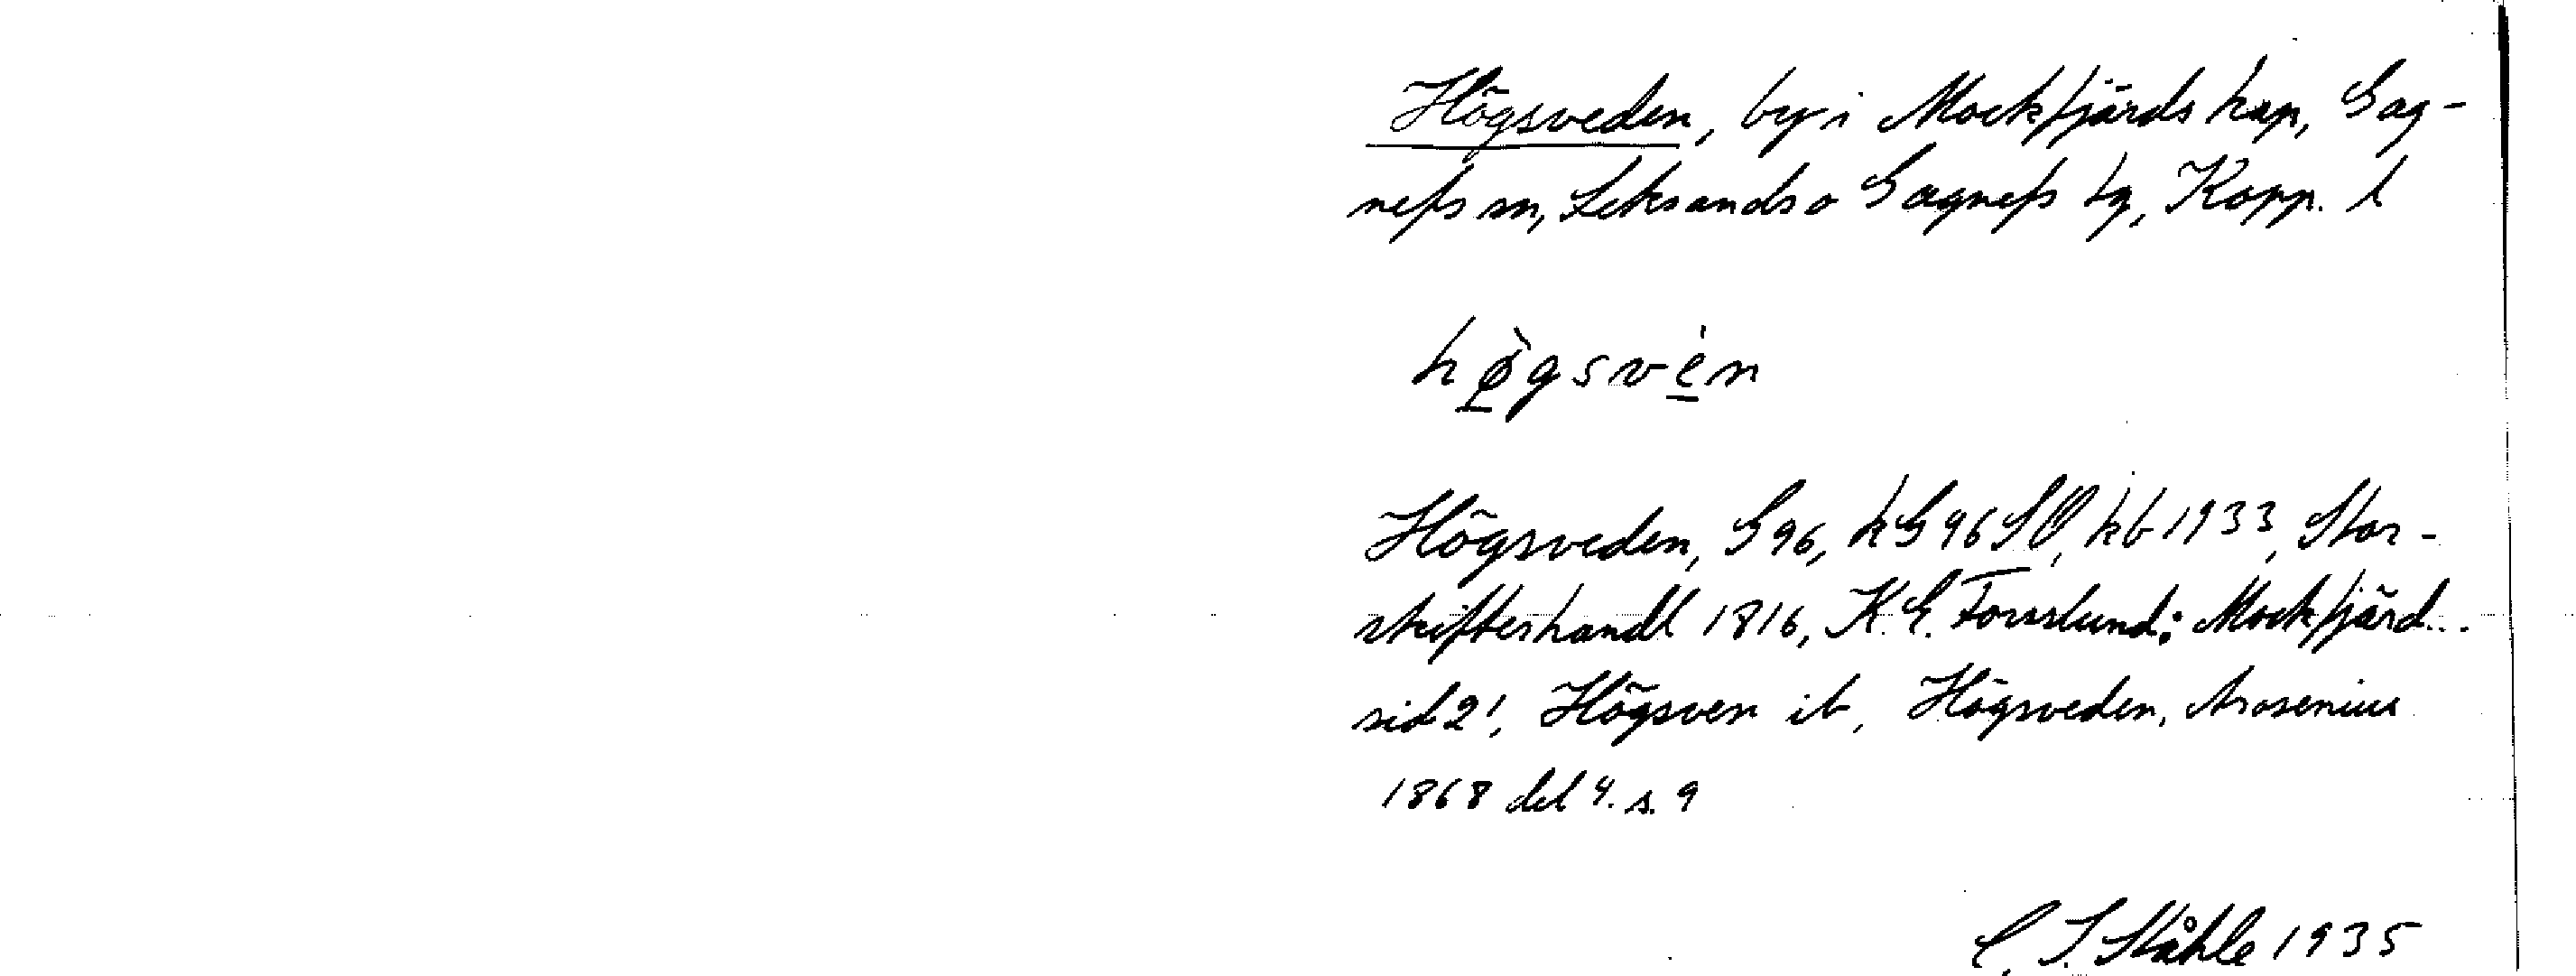 Högsveden, by i Mockfjärds kap, Gag-
nefs sn, Leksands o Gagnefs tg, Kopp. l
hø̀gsvèn
Högsveden, G96, kG96SV, kb 1933, Stor-
skifteshandl 1816, K. E. Forsslund: Mockfjärd..
sid 21, Högsven ib, Högsveden, Arosenius
1868 del 4. s. 9
C. I. Ståhle 1935